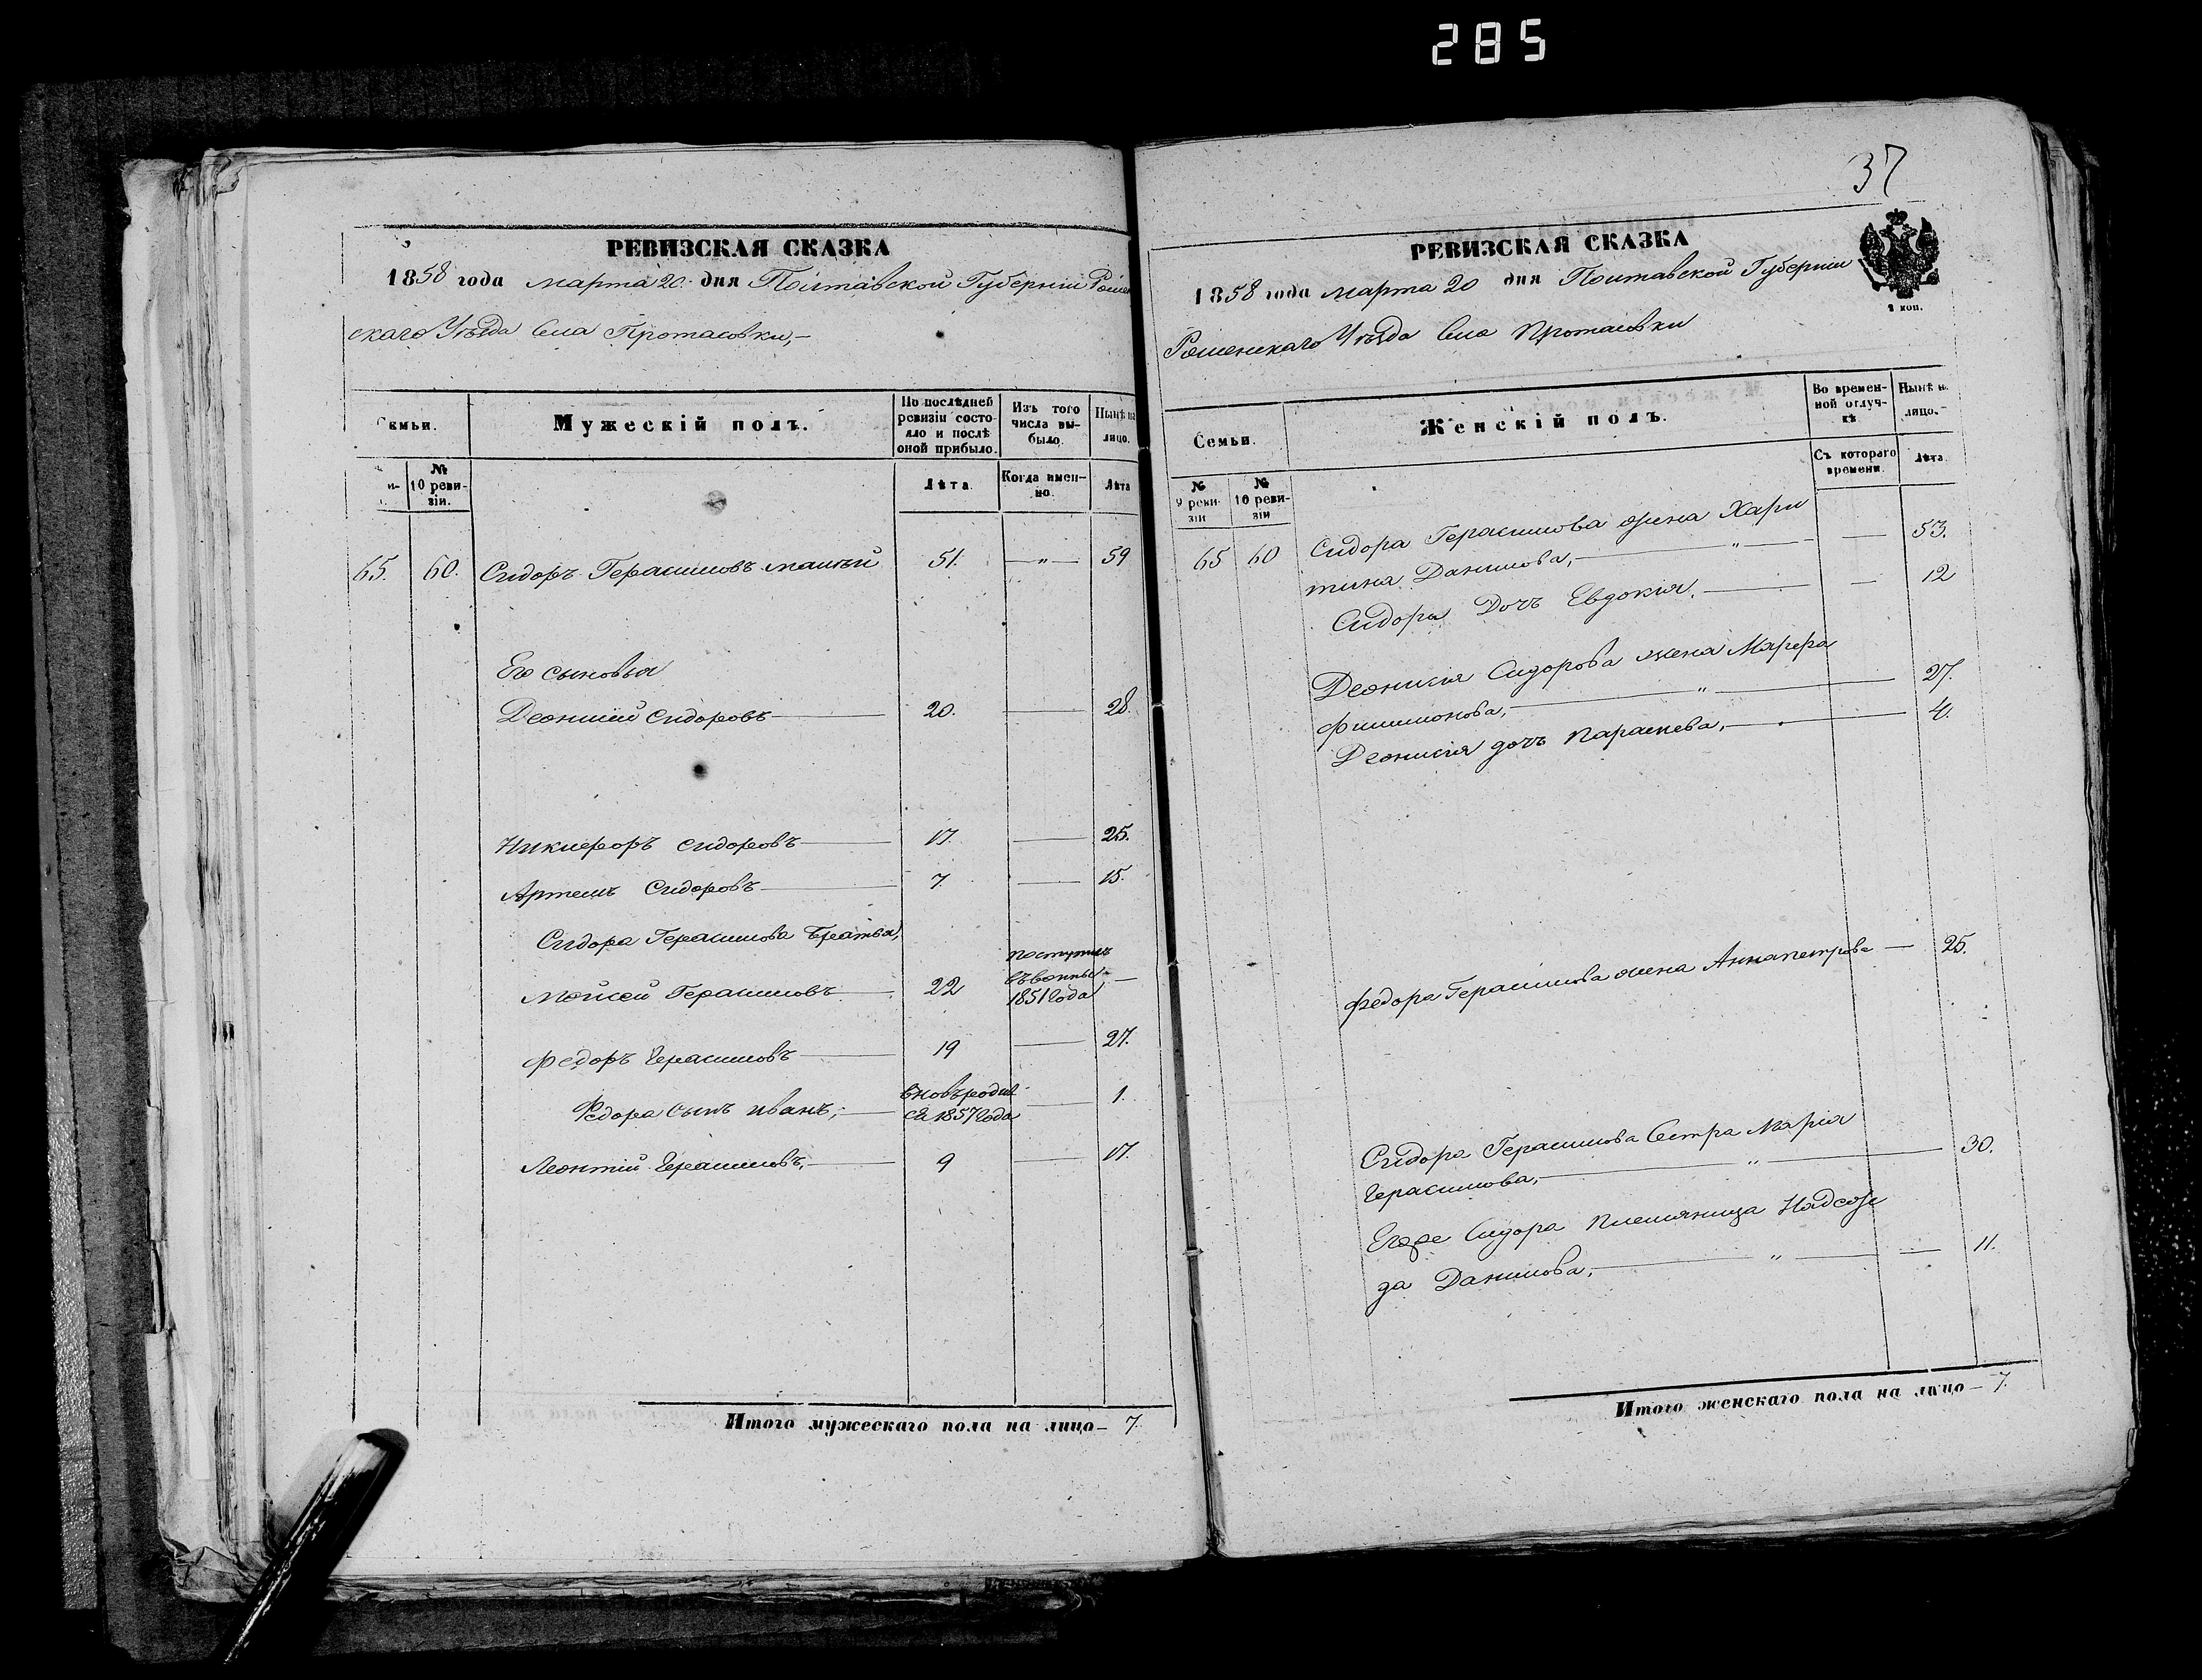 285
37
РЕВИЗСКАЯ СКАЗКА
1858 года марта 20. дня Полтавской Губерніи Ромен
скаго Уѣзда Села Протасовки,—
Семьи.
Мужескій полъ.
По послѣдней ревизіи состояло и послѣ оной прибыло.
Изъ того числа выбыло.
Нынѣ на лицо.
№ 10 ревизіи.
Лѣта.
Когда именно.
Лѣта
65. 60. Сидоръ Герасимовъ 51. —„— 59
Его сыновья
Деонисій Сидоровъ — 20. — 28.
Никифоръ Сидоровъ — 17. — 25.
Артемъ Сидоровъ — 7. — 15.
Сидора Герасимова братья,
Мойсей Герасимовъ — 22 поступилъ въ 1851 года —
Федоръ Герасимовъ — 19 — 27.
Федора сынъ Иванъ; — вновь родился 1857 года — 1.
Леонтій Герасимовъ, — 9 — 17.
Итого мужескаго пола на лицо— 7.
РЕВИЗСКАЯ СКАЗКА
1858 года марта 20 дня Полтавской Губерніи
Роменскаго Уѣзда Села Протасовки
2 коп.
Семьи.
Женскій полъ.
Во временной отлучкѣ
Нынѣ на лицо.
№ 9 ревизіи
№ 10 ревизіи
Съ котораго времени.
Лѣта.
65 60 Сидора Герасимова жена Хари
тина Данилова, —„— — 53.
Сидора Дочь Евдокія. — — 12
Деонисія Сидорова жена Марфа
Филимонова, —„— 27.
Деонисія дочь Параскева, — 4.
Федора Герасимова жена Анна Петрова — 25.
Сидора Герасимова Сестра Марія
Герасимова, —„— 30.
Егоже Сидора племяница Надеж
да Данилова, —„— — 11.
Итого женскаго пола на лицо— 7.